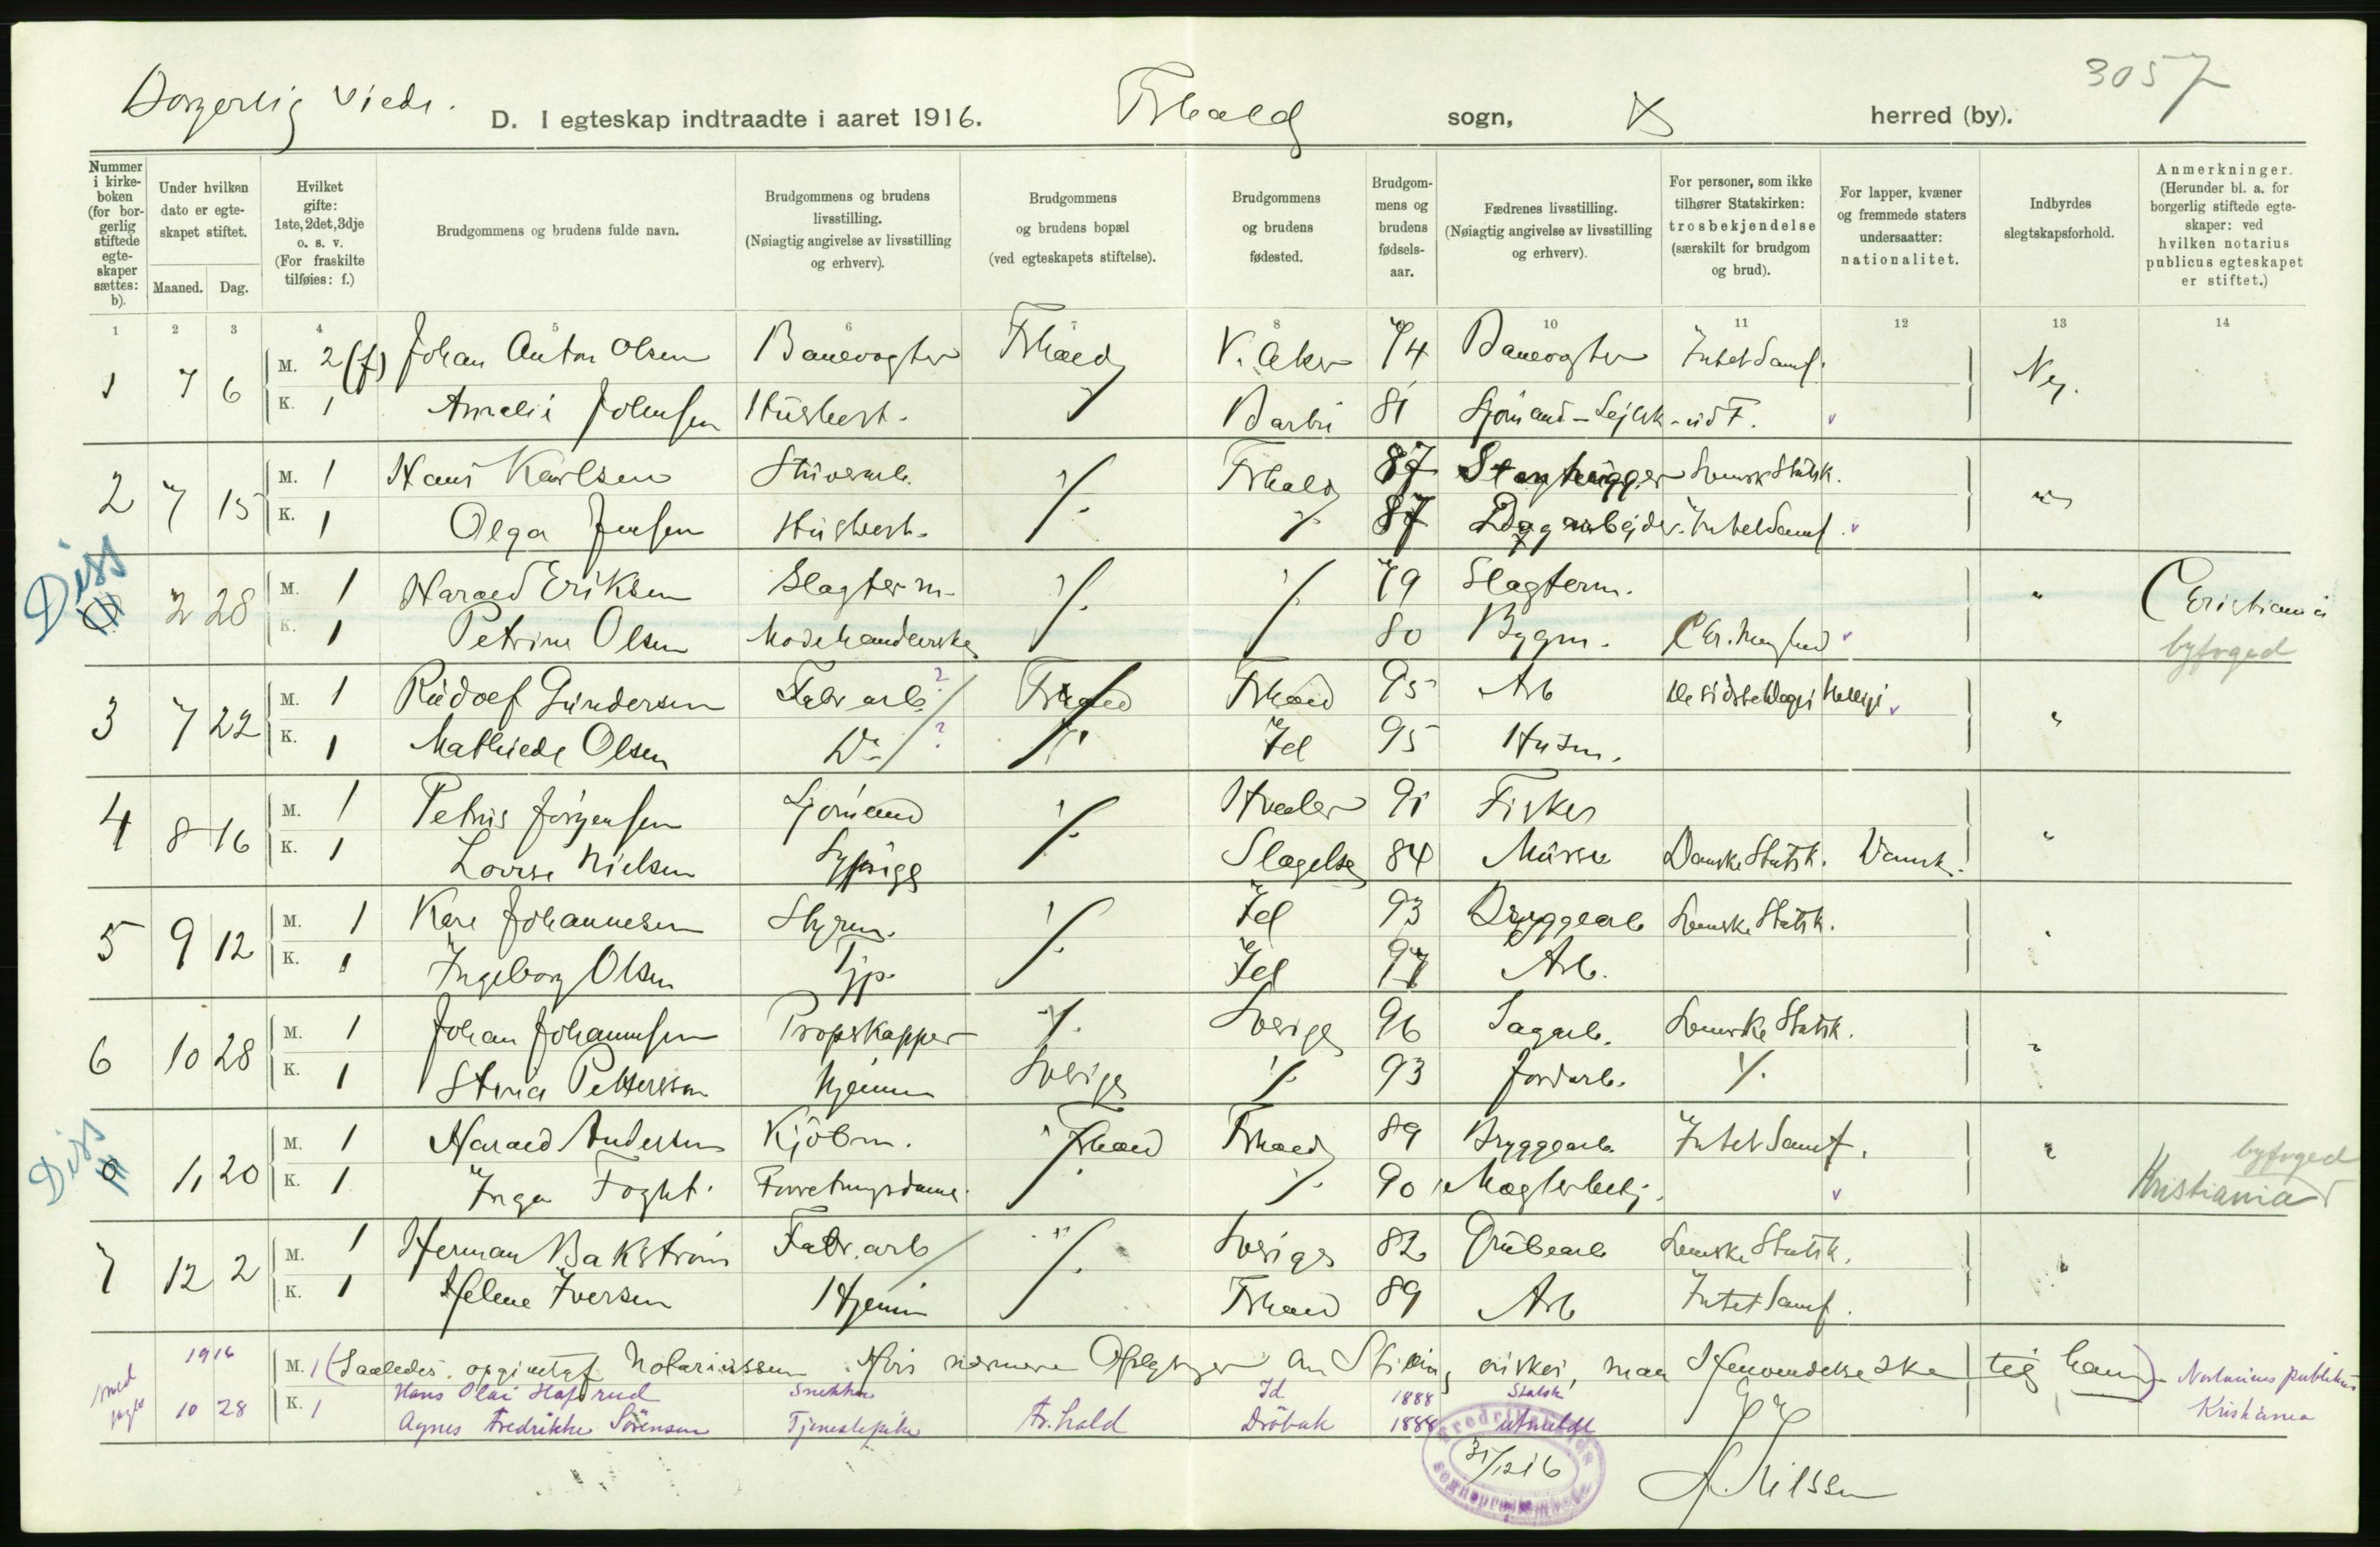 Borgerlig viede.
D. I egteskap indtraadte i aaret 1916.
Frhald
sogn,
herred (by).
3057
Nummer i kirkeboken (for borgerlig stiftede egteskaper sættes: b).
Under hvilken dato er egteskapet stiftet.
Maaned. Dag.
Hvilket gifte: 1ste, 2det, 3dje o. s. v. (For fraskilte tilføies: f.)
Brudgommens og brudens fulde navn.
Brudgommens og brudens livsstilling. (Nøiagtig angivelse av livsstilling og erhverv).
Brudgommens og brudens bopæl (ved egteskapets stiftelse).
Brudgommens og brudens fødested.
Brudgommens og brudens fødselsaar.
Fædrenes livsstilling. (Nøiagtig angivelse av livsstilling og erhverv).
For personer, som ikke tilhører Statskirken: trosbekjendelse (særskilt for brudgom og brud).
For lapper, kvæner og fremmede staters undersaatter: nationalitet.
Indbyrdes slegtskapsforhold.
Anmerkninger. (Herunder bl. a. for borgerlig stiftede egteskaper: ved hvilken notarius publicus egteskapet er stiftet.)
1 2 3 4 5 6 7 8 10 11 12 13 14
1 7 6 M. 2(f) Johan Anton Olsen Banevogter Frhald V. Aker 74 Banevogter Intet Samf. Nej.
K. 1 Amelie Johnsen Husbest. Barbu 81 Sjömand - Sejlsk
2 7 15 M. 1 Hans Karlsen Stuverarb. Frhald 87 Stenhugger Svensk Statsk.
K. 1 Olga Jensen Husbest. 87 Dagarbejder Intet Samf.
Diss
2 28 M. 1 Harald Eriksen Slagterm. 79 Slagterm. Christiania
K. 1 Petrine Olsen Modehandlerske 80 Bygm. byfoged
3 7 22 M. 1 Rudolf Gundersen Fabr arb. ? Frhald Frhald 95 Arb De sidste Dages Hellige
K. 1 Mathilde Olsen Do ? Id 95 Husm.
4 8 16 M. 1 Petrus Jörgensen Sjömand Hvaler 91 Fisker
K. 1 Lovise Nielsen Sypige Slagelse 84 Murer Danske Statsk. Dansk.
5 9 12 M. 1 Kare Johannesen Styrm. Id 93 Bryggearb Svenske Statsk.
K. 1 Ingeborg Olsen Tjp. Id 97 Arb.
6 10 28 M. 1 Johan Johannesen Propskapper Sverige 96 Sagarb. Svenske Statsk.
K. 1 Stina Pettersson hjemme Sverige 93 Jordarb.
Diss
11 20 M. 1 Harald Andersen Kjöbm. Frhald Frhald 89 Bryggearb Intet Samf. byfoged
K. 1 Inga Foght Forretningsdame 90 Kristiania
7 12 2 M. 1 Herman Bakström Fabr. arb Sverige 82 Grubearb Svenske Statsk.
K. 1 Helene Iversen Hjemme Frhald 89 Arb Intet Samf.
1916 M. 1 (Saaledes opgivet af Notariussen. Hvis nærmere Oplysninger om Stilling önskes, maa Henvendelse ske til ham) Notarius publikus
10 28 K. 1 Hans Olai Hafsrud Snekker Id 1888 Statsk Kristiania
Agnes Fredrikke Sörensen Tjenestepike Fr.hald Dröbak 1888 utmeldt
31/12 16
Nilssen